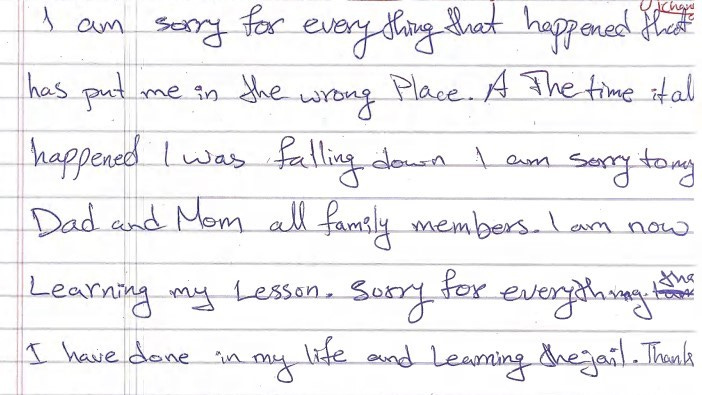 I am sorry for every thing that happened that
has put me in the wrong Place. A The time it al
happened I was falling down I am sorry to my
Dad and Mom all family members. I am now
Learning my Lesson. Sorry for everything the
I have done in my life and Learning the jail. Thank